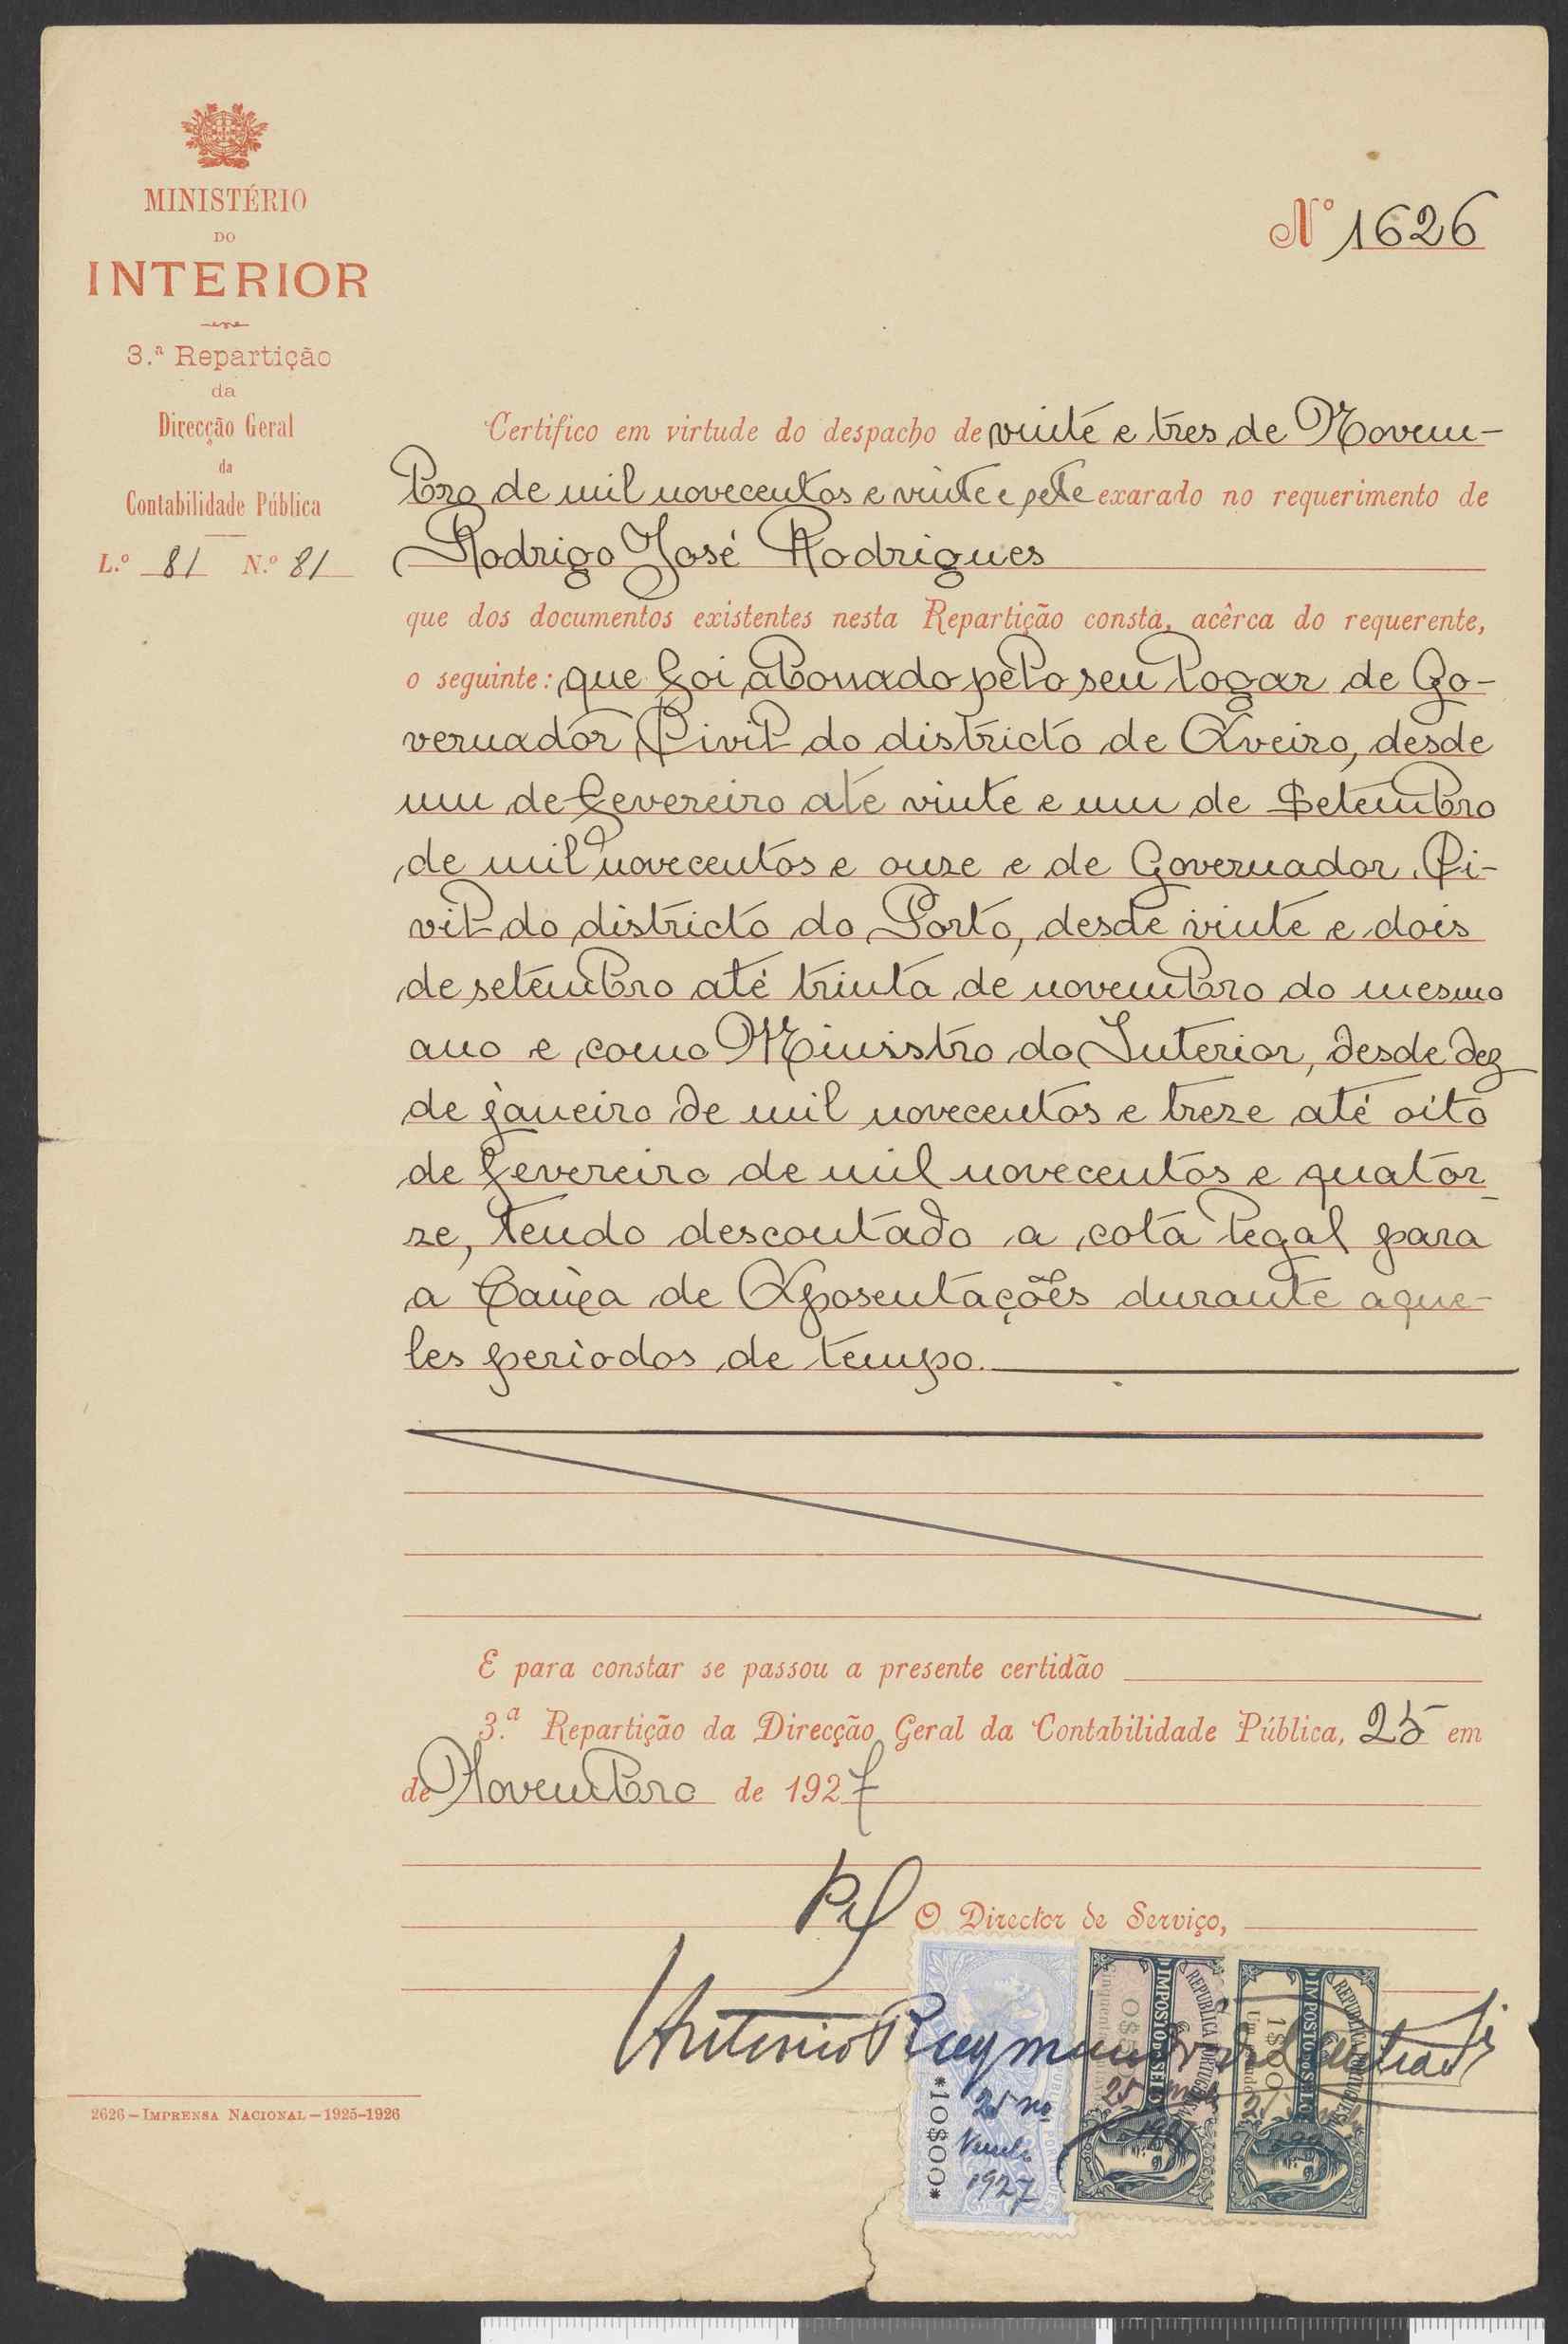 MINISTÉRIO
DO
INTERIOR
3.ª Repartição
da
Direcção Geral
da
Contabilidade Pública
L.º 81 N.º 81
Nº 1626
Certifico em virtude do despacho de vinte e tres de Novem-
bro de mil novecentos e vinte e sete exarado no requerimento de
Rodrigo José Rodrigues
que dos documentos existentes nesta Repartição consta, acêrca do requerente,
o seguinte: que foi abonado pelo seu logar de Go-
vernador Civil do districto de Aveiro, desde
um de fevereiro até vinte e um de Setembro
de mil novecentos e onze e de Governador Ci-
vil do districto do Porto, desde vinte e dois
de setembro até trinta de novembro do mesmo
ano e como Ministro do Interior, desde dez
de janeiro de mil novecentos e treze até oito
de fevereiro de mil novecentos e quator-
ze, tendo descontado a cota legal para
a Caixa de Aposentações durante aque-
les periodos de tempo.
E para constar se passou a presente certidão
3.ª Repartição da Direcção Geral da Contabilidade Pública, 25 em
de Novembro de 1927
Pel O Director de Serviço,
Antonio Raymundo
REPUBLICA PORTUGUESA
IMPOSTO DO SELO
1$00
REPUBLICA PORTUGUESA
IMPOSTO DO SELO
*10$00*
25 no
vembro
1927
2626 – IMPRENSA NACIONAL – 1925-1926